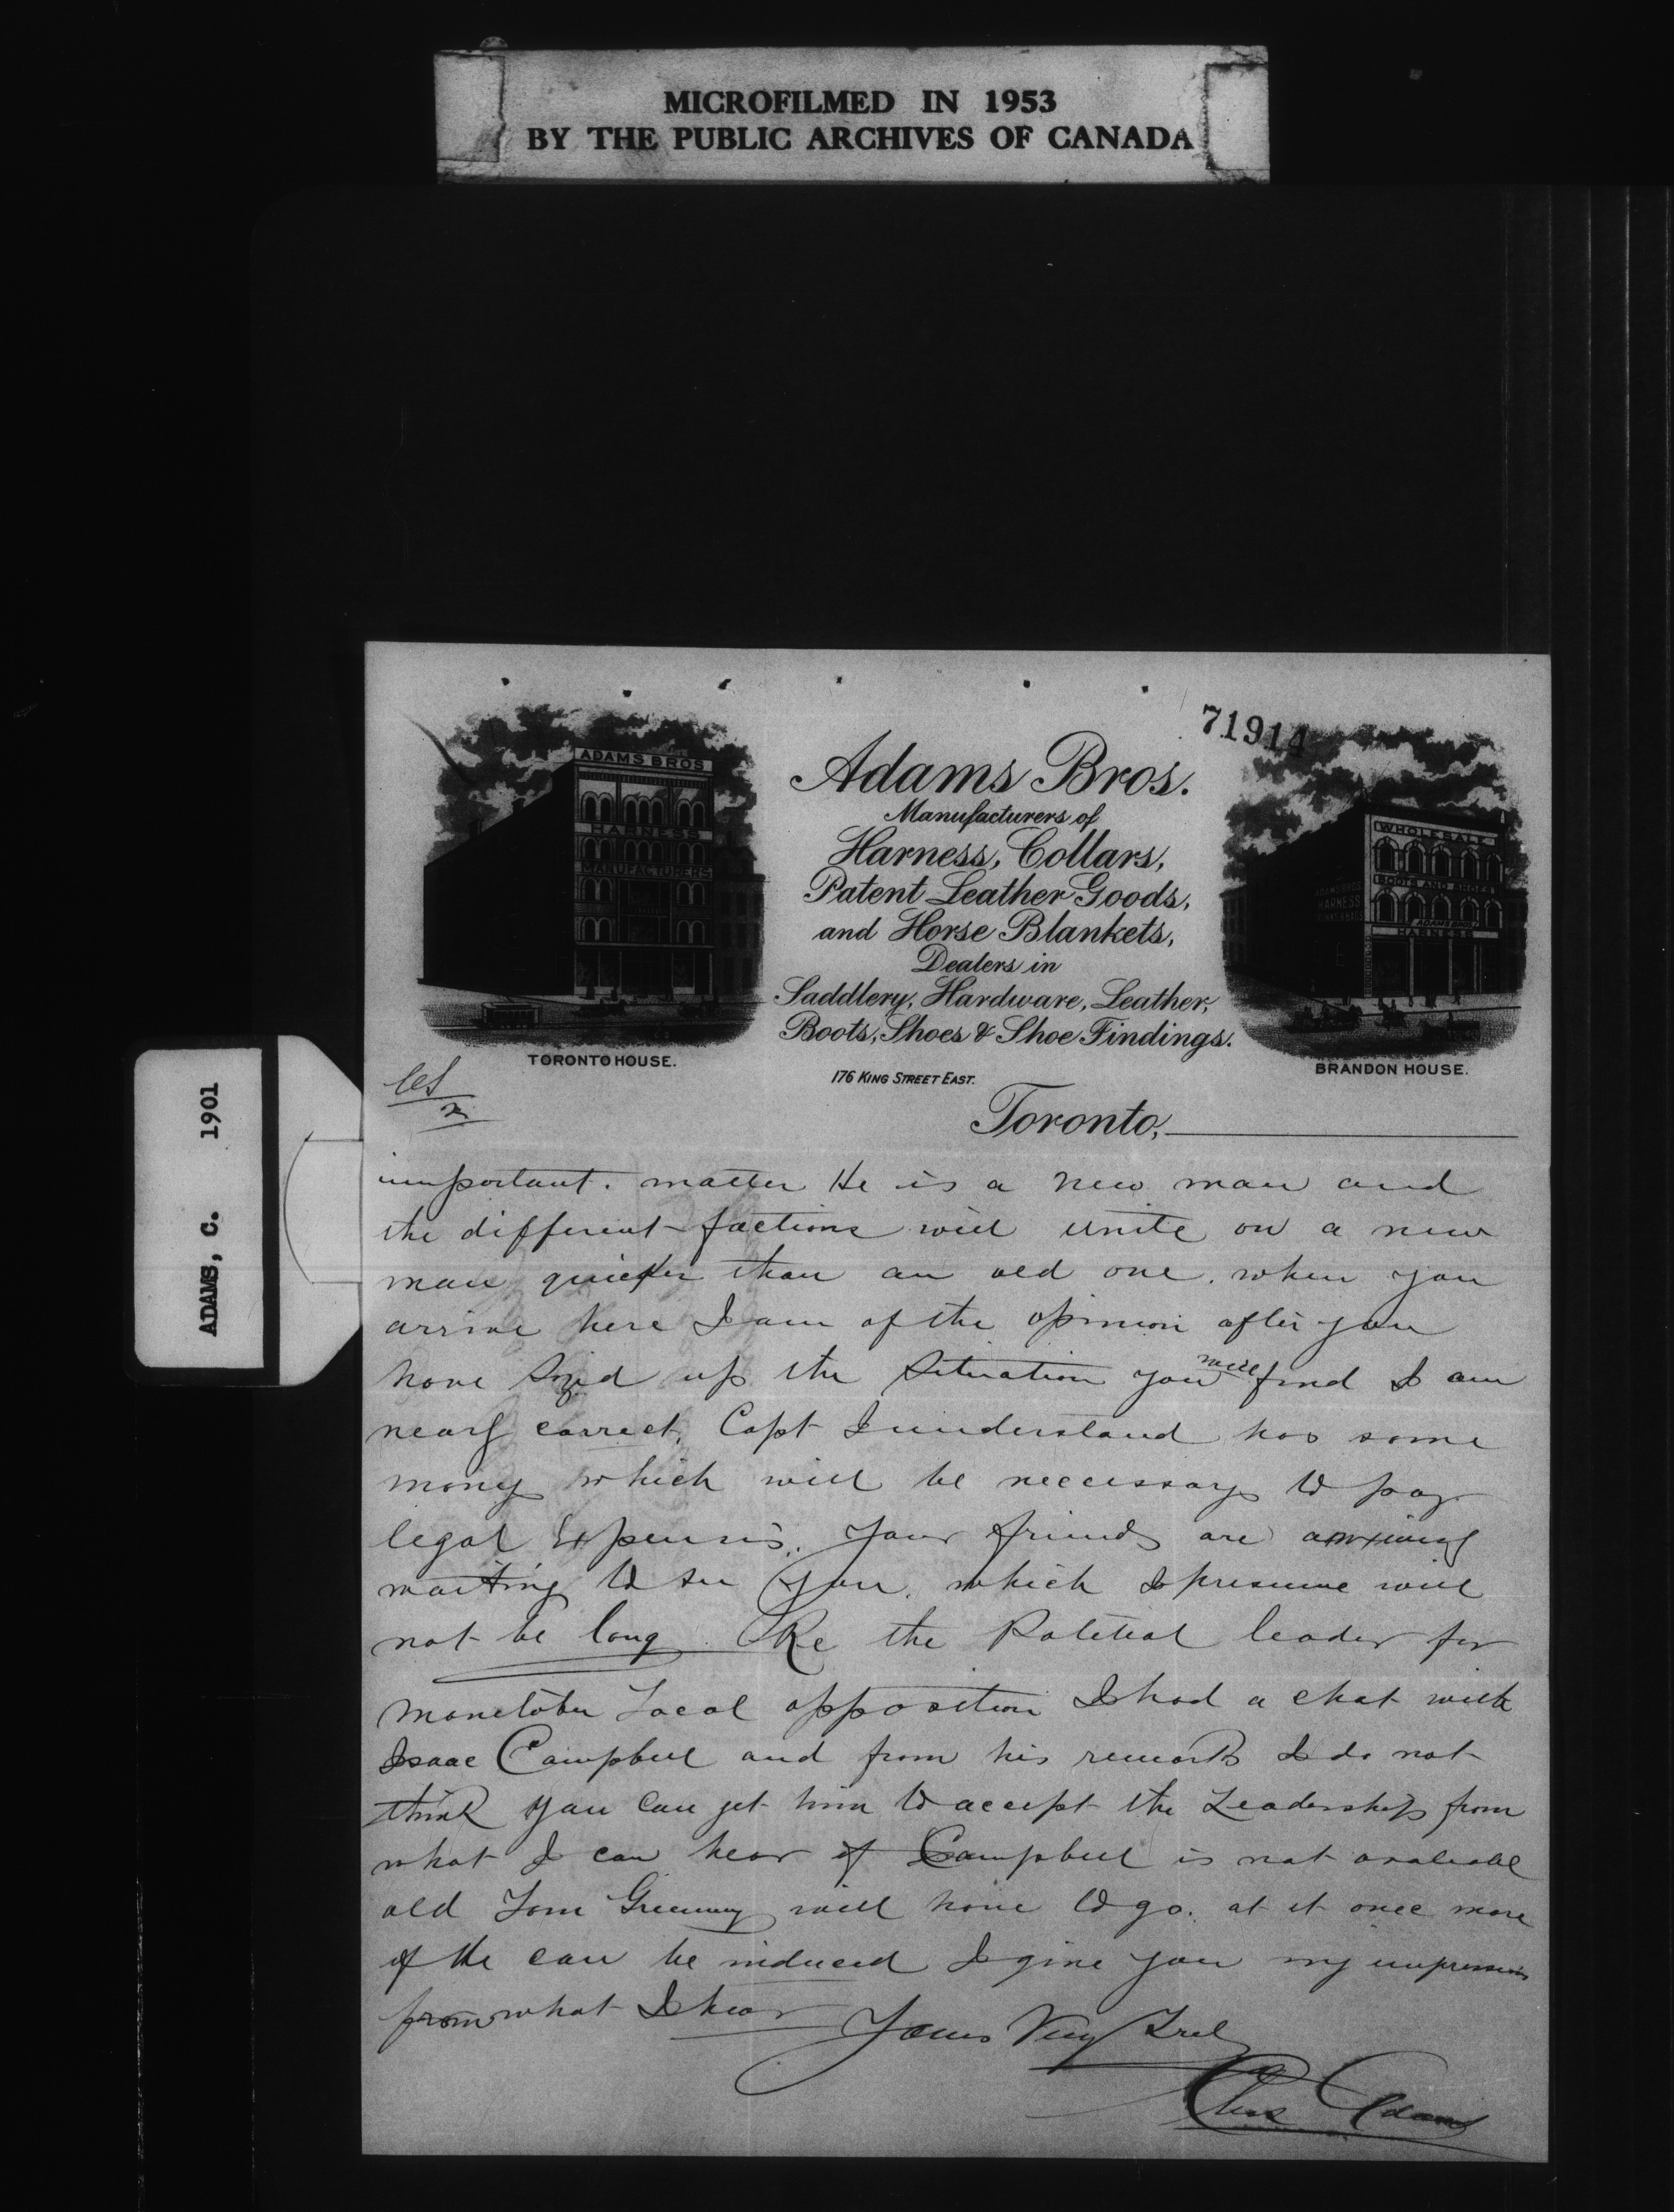 MICROFILMED IN 1953
BY THE PUBLIC ARCHIVES OF CANADA
ADAMS, C. 1901
71914
ADAMS BROS
HARNESS
MANUFACTURERS
TORONTO HOUSE.
Adams Bros.
Manufacturers of
Harness, Collars,
Patent Leather Goods,
and Horse Blankets,
Dealers in
Saddlery, Hardware, Leather,
Boots, Shoes & Shoe Findings.
176 KING STREET EAST.
Toronto,
WHOLESALE
BOOTS AND SHOES
ADAMS BROS
HARNESS
BRANDON HOUSE.
2
important. matter He is a new man and
the different factions will unite on a new
man quicker than an old one. when you
arrive here I am of the opinion after you
have sized up the situation you will find I am
nearly correct. Capt I understand has some
money which will be neccessary to pay
legal Expenses. Your friends are anxiously
waiting to see you. which I presume will
not be long. Re the Political leader for
Manitoba Local opposition I had a chat with
Isaac Campbell and from his remarks I do not
think you can get him to accept the Leadership from
what I can hear if Campbell is not available
old Tom Greenway will have to go. at it once more
if He can be induced I give you my impressions
from what I hear Yours Very Truly
Chas Adams